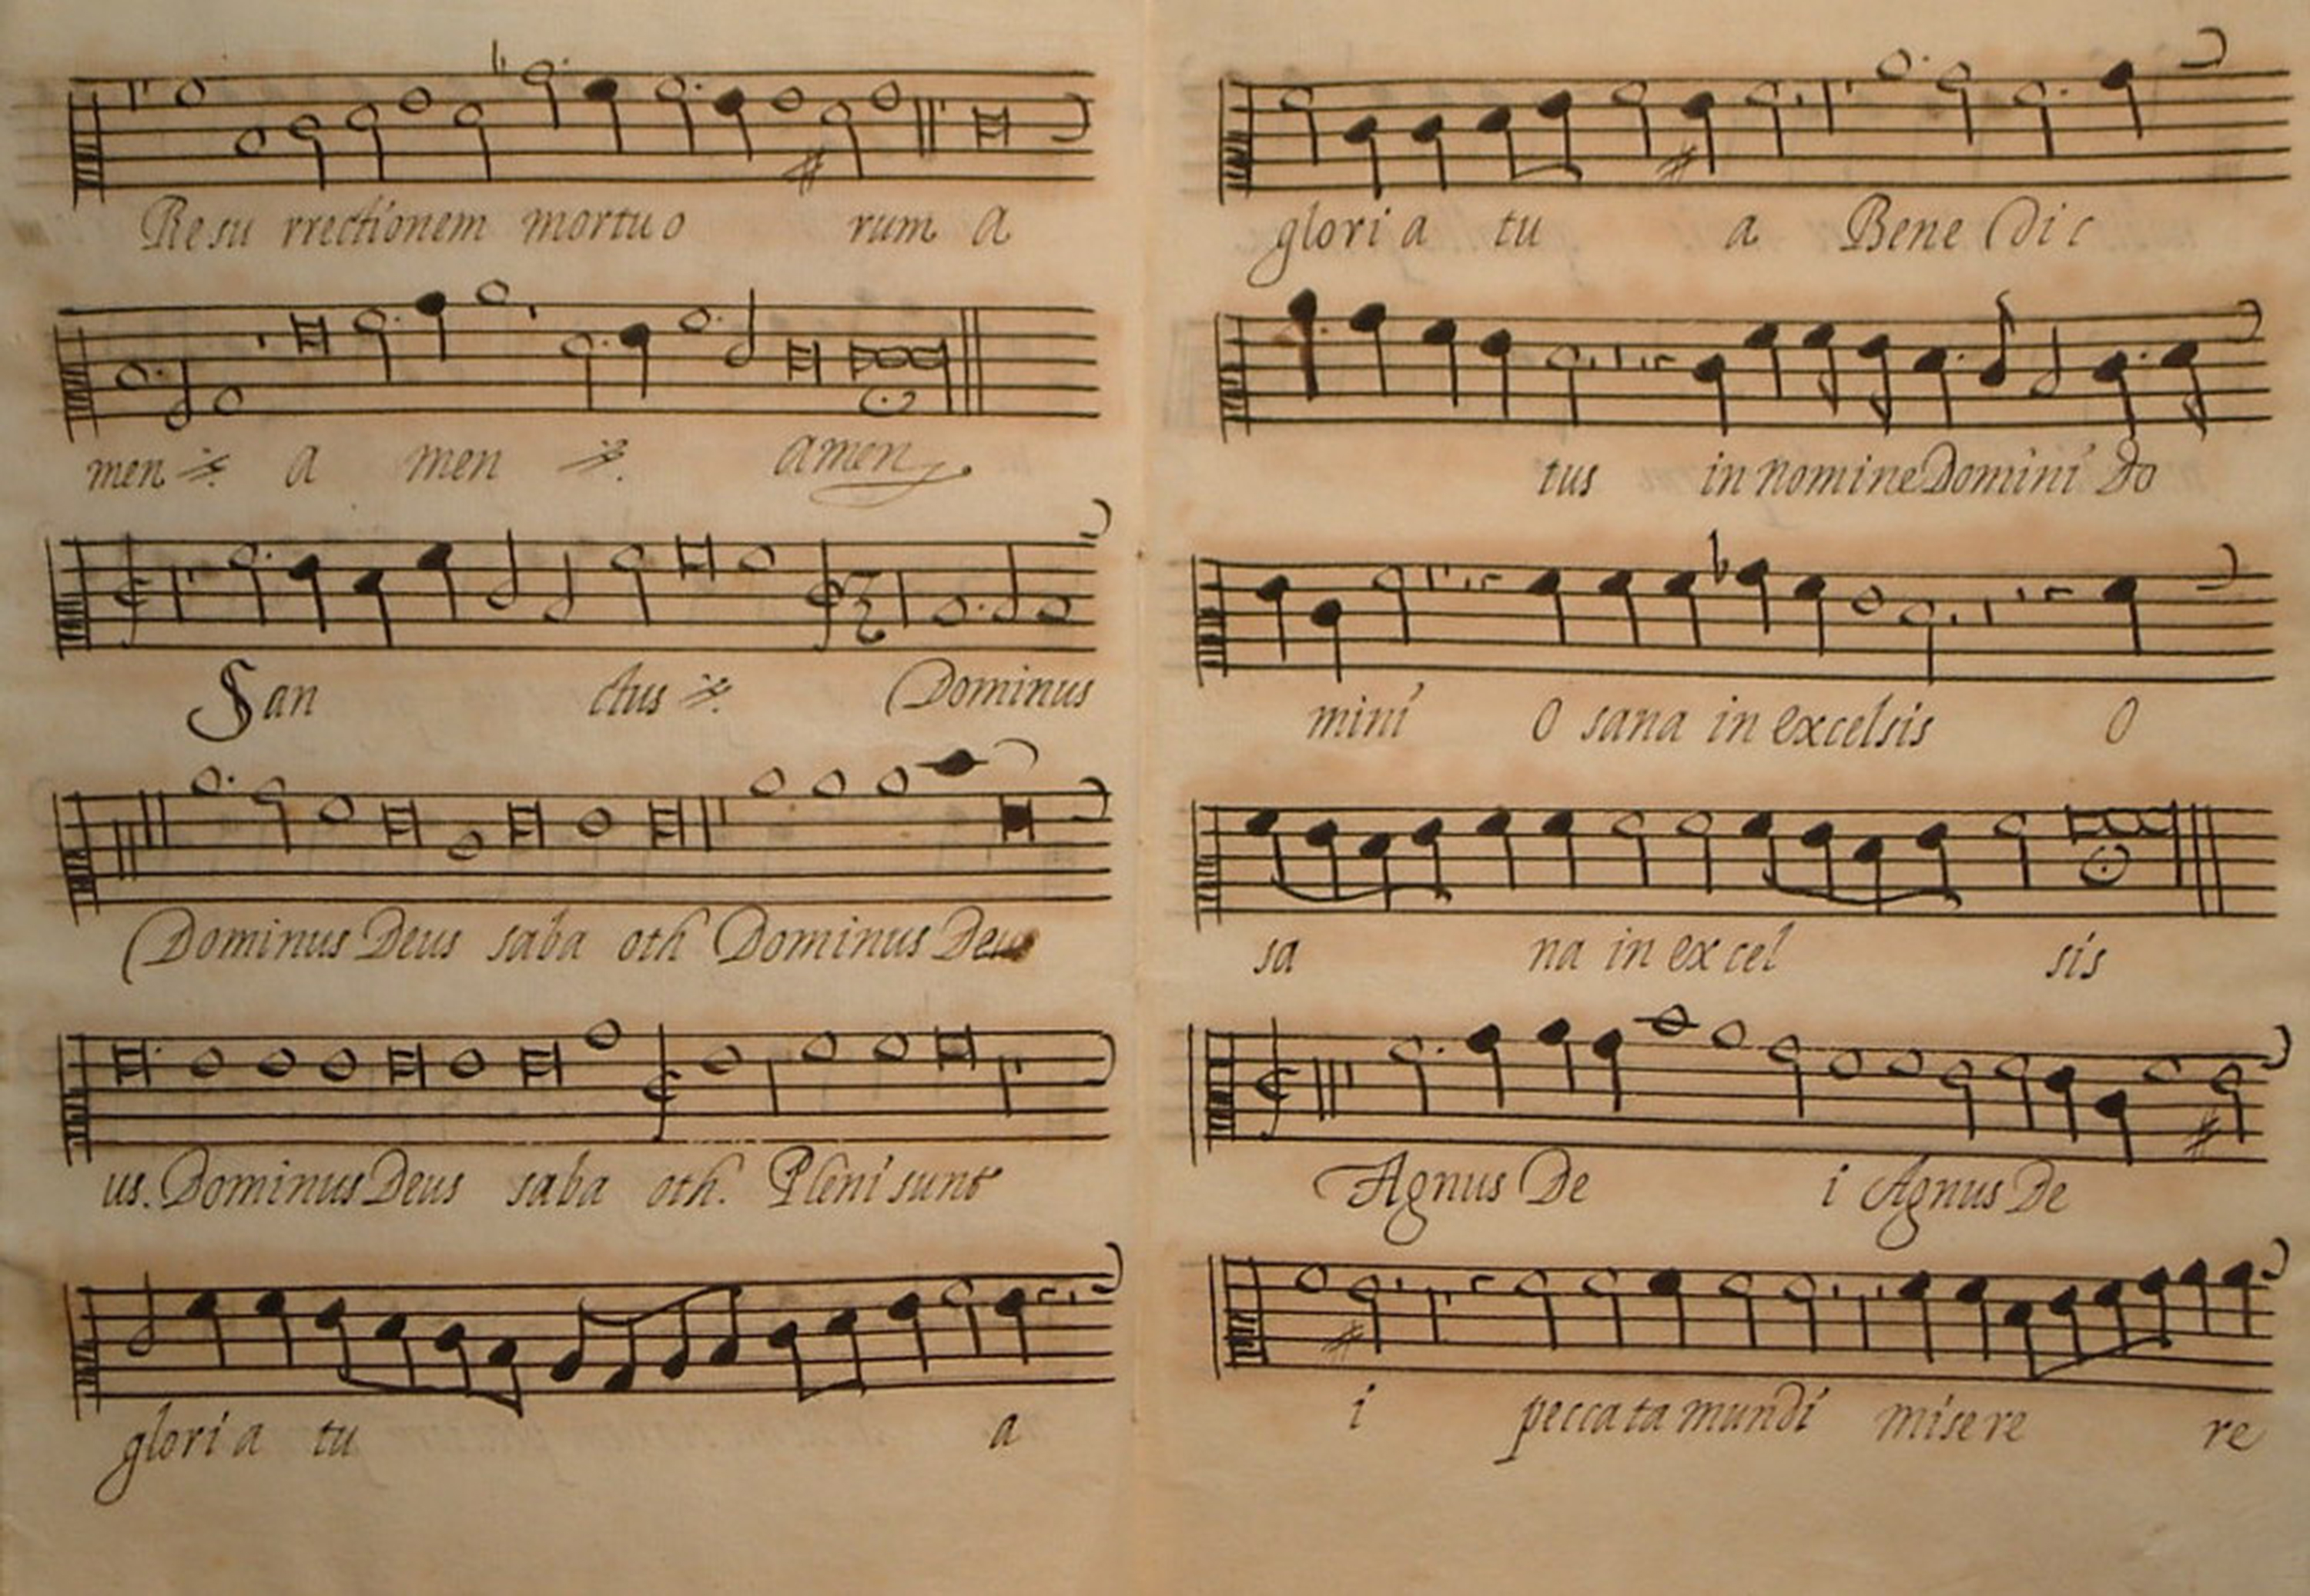 Resu rrectionem mortuo rum a
men a men amen
San ctus Dominus
Dominus Deus saba oth Dominus Deus
us. Dominus Deus saba oth. Pleni sunt
glori a tu a
glori a tu a Bene dic
tus in nomine Domini Do
mini O sana in excelsis O
sa na in ex cel sis
Agnus De i Agnus De
i peccata mundi misere re